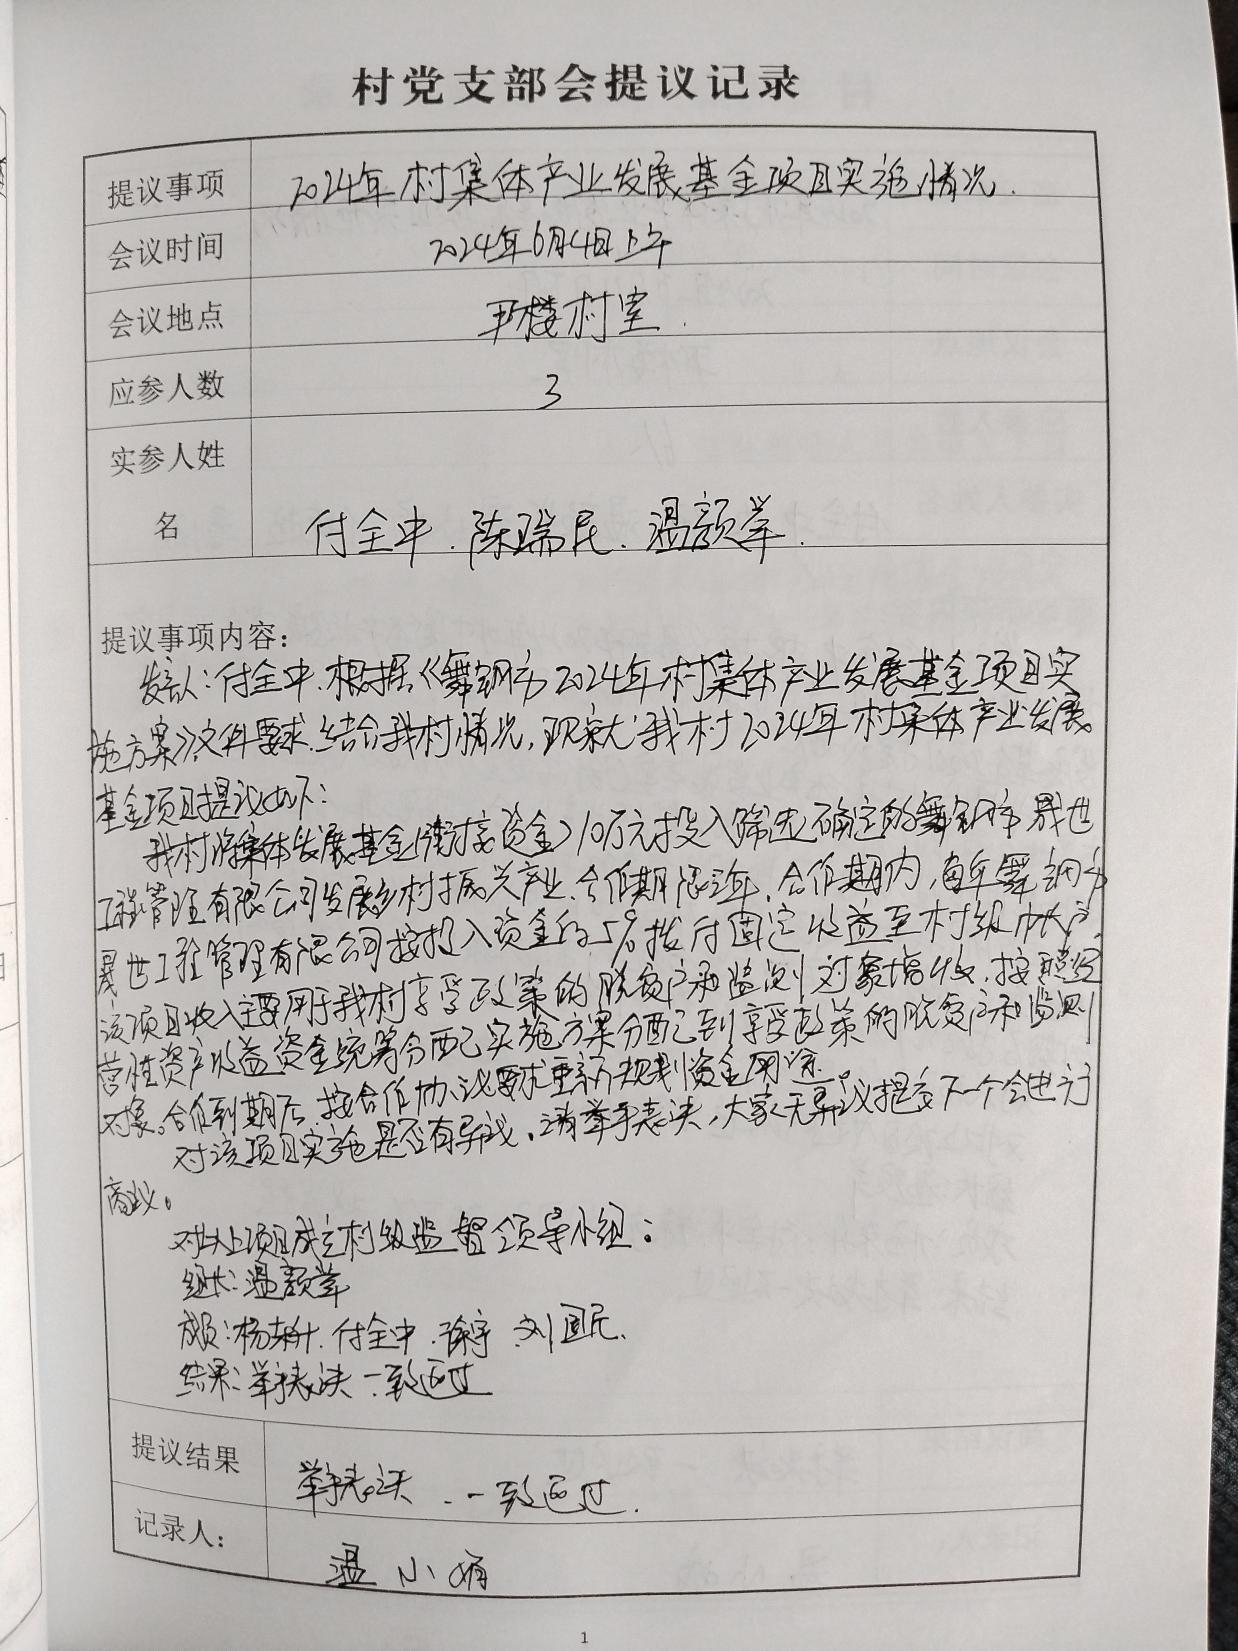 村党支部会提议记录
提议事项 2024年村集体产业发展基金项目实施情况.
会议时间 2024年6月4日上午
会议地点 平楼村室.
应参人数 3
实参人姓
名 付全中.陈瑞民.温颜举.
提议事项内容:
发言人:付全中.根据《舞钢市2024年村集体产业发展基金项目实
施方案》文件要求.结合我村情况,现就我村2024年村集体产业发展
基金项目提议如下:
我村将集体发展基金(衔接资金)10万元投入筛选确定的舞钢市晟世
工程管理有限公司发展乡村振兴产业.合作期限三年.合作期内,每年舞钢市
晟世工程管理有限公司按投入资金的5%拨付固定收益至村级帐户.
该项目收入主要用于我村享受政策的脱贫户和监测对象增收.按照经
营性资产收益资金统筹分配实施方案分配到享受政策的脱贫户和监测
对象。合作到期后.按合作协议要求重新规划资金用途.
对该项目实施是否有异议.请举手表决,大家无异议提交下一个会进行
商议。
对以上项目成立村级监督领导小组:
组长:温颜举
成员:付全中.刘国民.
结果:举手表决一致通过
提议结果 举手表决.一致通过.
记录人: 温小娟
1